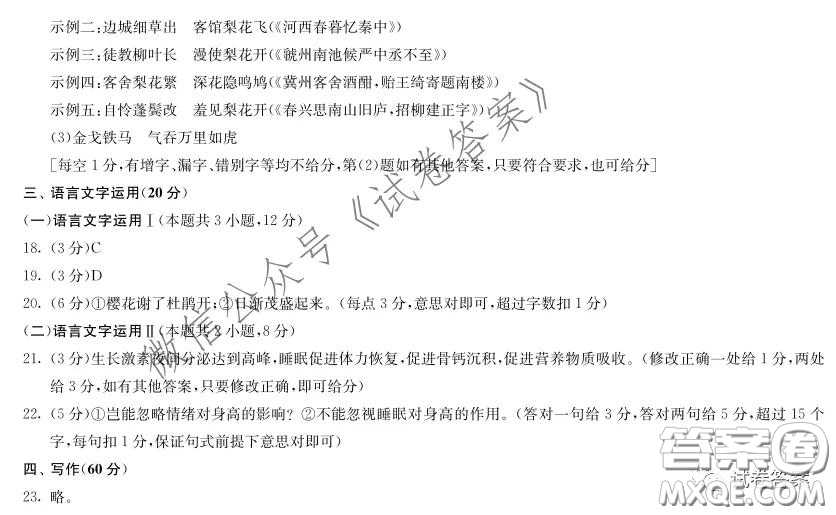 示例二:边城细草出　客馆梨花飞(《河西春暮忆秦中》)
示例三:徒教柳叶长　漫使梨花开(《虢州南池候严中丞不至》)
示例四:客舍梨花繁　深花隐鸣鸠(《冀州客舍酒酣,贻王绮寄题南楼》)
示例五:自怜蓬鬓改　羞见梨花开(《春兴思南山旧庐,招柳建正字》)
(3)金戈铁马　气吞万里如虎
[每空1分,有增字、漏字、错别字等均不给分,第(2)题如有其他答案,只要符合要求,也可给分]
三、语言文字运用(20分)
(一)语言文字运用Ⅰ(本题共3小题,12分)
18.(3分)C
19.(3分)D
20.(6分)①樱花谢了杜鹃开;②日渐茂盛起来。(每点3分,意思对即可,超过字数扣1分)
(二)语言文字运用Ⅱ(本题共2小题,8分)
21.(3分)生长激素夜间分泌达到高峰,睡眠促进体力恢复,促进骨钙沉积,促进营养物质吸收。(修改正确一处给1分,两处
给3分,如有其他答案,只要修改正确,即可给分)
22.(5分)①岂能忽略情绪对身高的影响?②不能忽视睡眠对身高的作用。(答对一句给3分,答对两句给5分,超过15个
字,每句扣1分,保证句式前提下意思对即可)
四、写作(60分)
23.略。
微信公众号《试卷答案》
试卷答案
答案圈
MXQE.COM